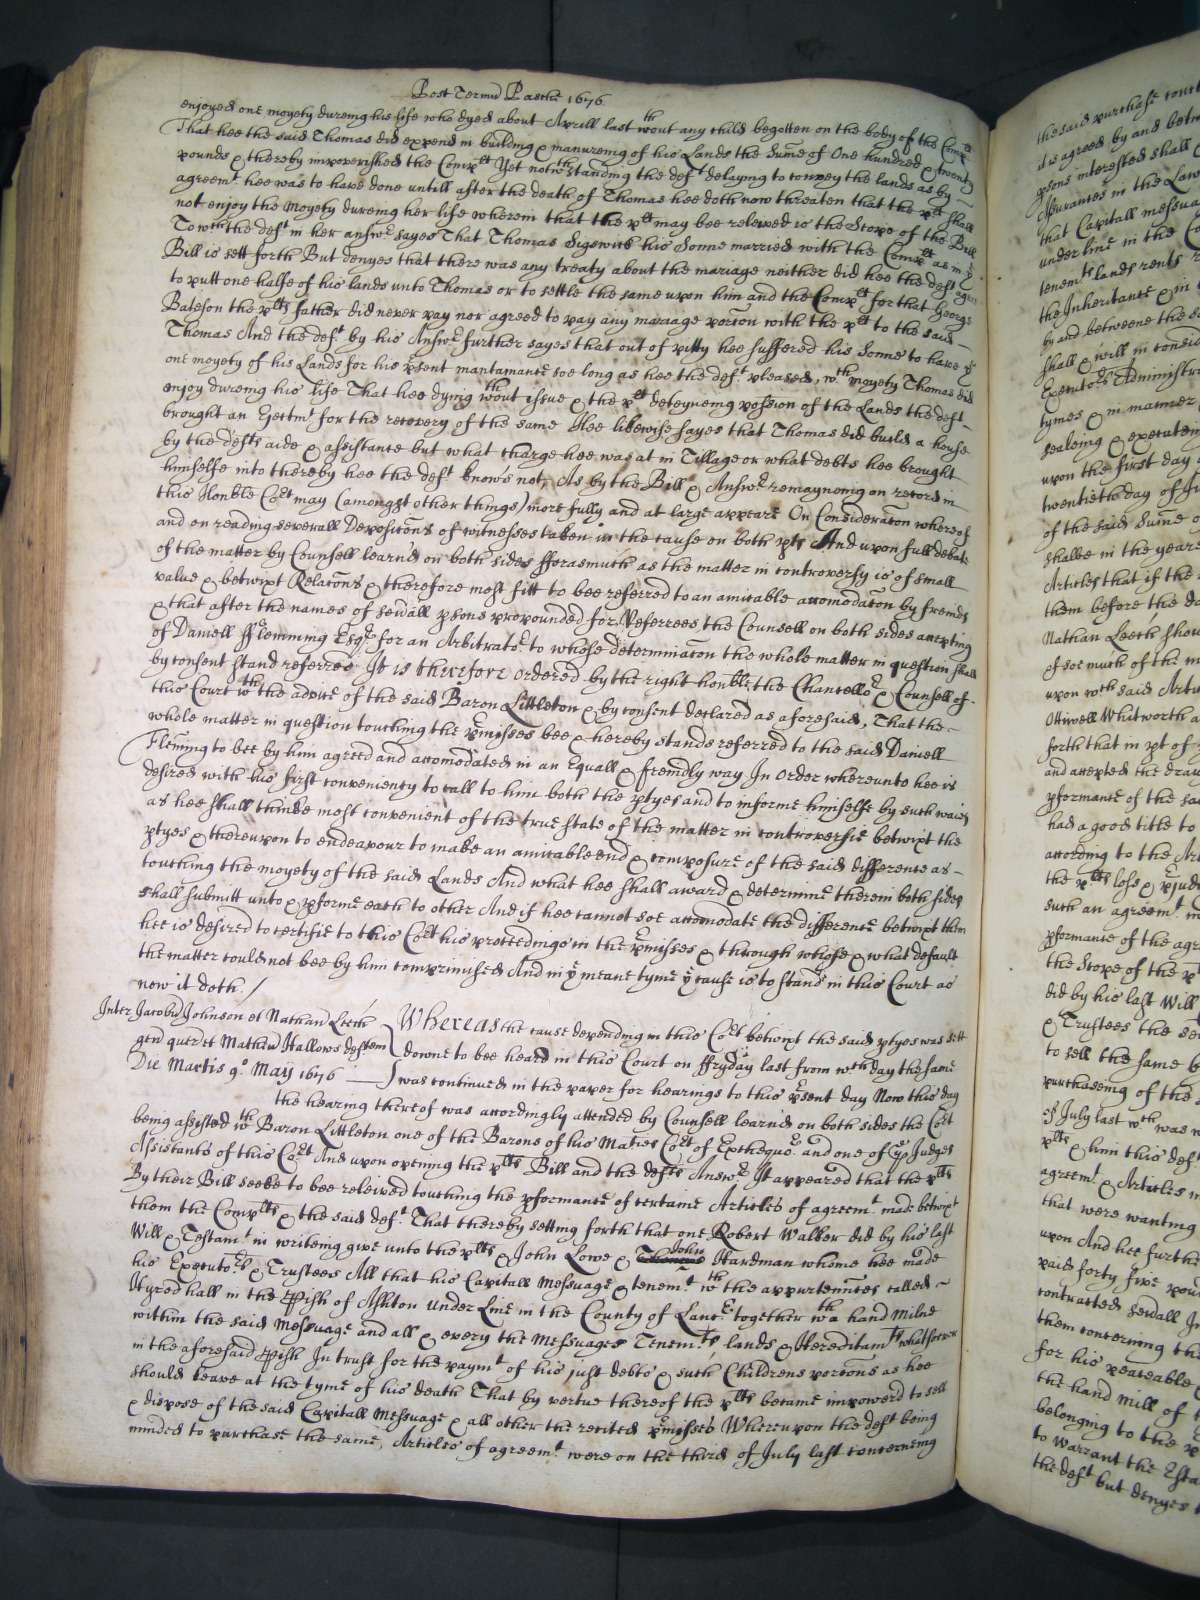 Post Termū Pasche 1676
enjoyed one moyety dureing his life who dyed about Aprill last wthout any child begotten on the body of the Complt
That hee the said Thomas did expend in building & manureing of his Lands the Sume of One hundred & twenty
pounds & thereby impoverished the Complt Yet notwthstanding the deft delaying to convey the lands as by
agreemt hee was to have done untill after the death of Thomas hee doth now threaten that the plt shall
not enjoy the Moyety dureing her life wherein that the plt may bee releived is the Scope of the Bill
To wch the deft in her answr sayes That Thomas Sigswick his Sonne married with the Complt as in ye
Bill is sett forth But denyes that there was any treaty about the mariage neither did hee the deft agree
to putt one halfe of his lands unto Thomas or to settle the same upon him and the Complt for that George
Bateson the plts father did never pay nor agreed to pay any mariage porcōn with the plt to the said
Thomas And the deft by his Answr further sayes that out of pitty hee suffered his Sonne to have ye
one moyety of his Lands for his prsent mantenance soe long as hee the deft pleased, wch moyety Thomas did
enjoy dureing his life That hee dying wthout issue & the plt deteyneing possion of the Lands the deft
brought an Ejectmt for the recovery of the same Hee likewise sayes that Thomas did build a house
by the defts aide & assistance but what charge hee was at in Tillage or what debts hee brought
himselfe into thereby hee the deft know's not, As by the Bill & Answr remayneing on record in
this Honble Cort may (amongst other things) more fully and at large appeare On Consideracōn whereof
and on reading severall Deposicōns of witnesses taken in the cause on both pts And upon full debate
of the matter by Counsell learnd on both sides fforasmuch as the matter in controversy is of small
value & betwixt Relacōns & therefore most fitt to bee referred to an amicable accomodacōn by freinds
& that after the names of sevall psons propounded for Referrees the Counsell on both sides accepting
of Daniell Fflemming Esqr for an Arbitrator to whose determinacōn the whole matter in question shall
by consent stand referred It is therefore ordered by the right honble the Chancellor & Counsell of
this Court wth the advice of the said Baron Littleton & by consent declared as aforesaid, That the
whole matter in question touching the prmisses bee & hereby stands referred to the said Daniell
Fleming to bee by him agreed and accomodated in an Equall & freindly way In order whereunto hee is
desired with his first conveniency to call to him both the ptyes and to informe himselfe by such waies
as hee shall thinke most convenient of the true state of the matter in controversie betwixt the
ptyes & thereupon to endeavour to make an amicable end & composure of the said difference as
touching the moyety of the said Lands And what hee shall award & determine therein both sides
shall submitt unto & pforme each to other And if hee cannot soe accomodate the difference betwixt them
hee is desired to certifie to this Cort his proceedings in the prmisses & through whose & what default
the matter could not bee by him comprimised And in ye meane tyme ye cause is to stand in this Court as
now it doth /
Inter Jacobū Johnson et Nathan Leech
gen quer et Mathew Hallows deften
Die Martis 9o May 1676
Whereas the cause depending in this Cort betwixt the said ptyes was sett
downe to bee heard in this Court on ffryday last from wch day the same
was continued in the paper for hearings to this prsent day Now this day
the hearing thereof was accordingly attended by Counsell learnd on both sides the Cort
being assisted wth Baron Littleton one of the Barons of his Maties Cort of Exchequr and one of ye Judges
Assistants of this Cort And upon opening the plts Bill and the defts Answr It appeared that the plts
By their Bill seeke to bee releived touching the pformance of certaine Articles of agreemt made betwixt
them the Complts & the said deft That thereby setting forth that one Robert Walker did by his last
Will & Testamt in writeing give unto the plts & John Lowe & John Hardman whome hee made
his Executors & Trustees All that his Capitall Messuage & tenemt wth the appurtennces called
Hyrod hall in the Pish of Ashton Under Line in the County of Lancr together wth a hand Milne
within the said Messuage and all & every the Messuages Tenemts, lands & Hereditamts whatsoever
in the aforesaid Pish In trust for the paymt of his just debts & such Childrens porcōns as hee
should leave at the tyme of his death That by vertue thereof the plts became impowerd to sell
& dispose of the said Capitall Messuage & all other the recited prmisses Whereupon the deft being
minded to purchase the same, Articles of agreemt were on the third of July last concerneing
the said purchase
it is agreed by and
psons interessed shall
Assurances in the Law
that Capitall messua
under line in the
tenemts lands rents
the Inheritance & in
by and betweene the
shall & will in
Executors Administr
tymes & in manner
sealeing &
upon the first day
twentieth day of
of the said Sume
shalbe in the yeare
Articles that if the
them before the
Nathan Leech
of soe much of the
upon wch said
Ottiwell Whitworth
forth that in pt of
and accepted the
pformance of the
had a good title to
according to the
the plts loss &
such an agreemt
pformance of the
the Scope of the
did by his last Will
& Trustees the
to sell the same
purchaseing of the
of July last wch was
plts & him this deft
agreemt & Articles
that were wanting
upon And hee further
paid forty five
contracted sevall
them concerning
for his peaceable
the hand Mill of
belonging to the
to warrant the
the deft but denyes